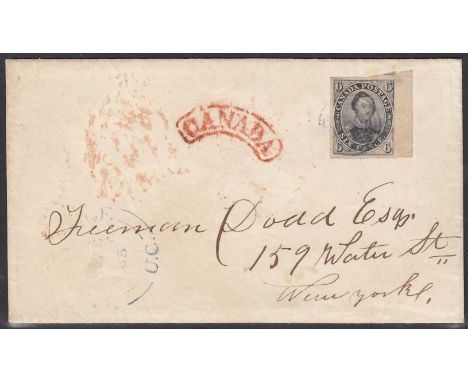 6 CANADA POSTAGE 6
6 SIX PENCE 6
CANADA
Freeman Dodd Esq.
159 Water St
New York.
U.C.